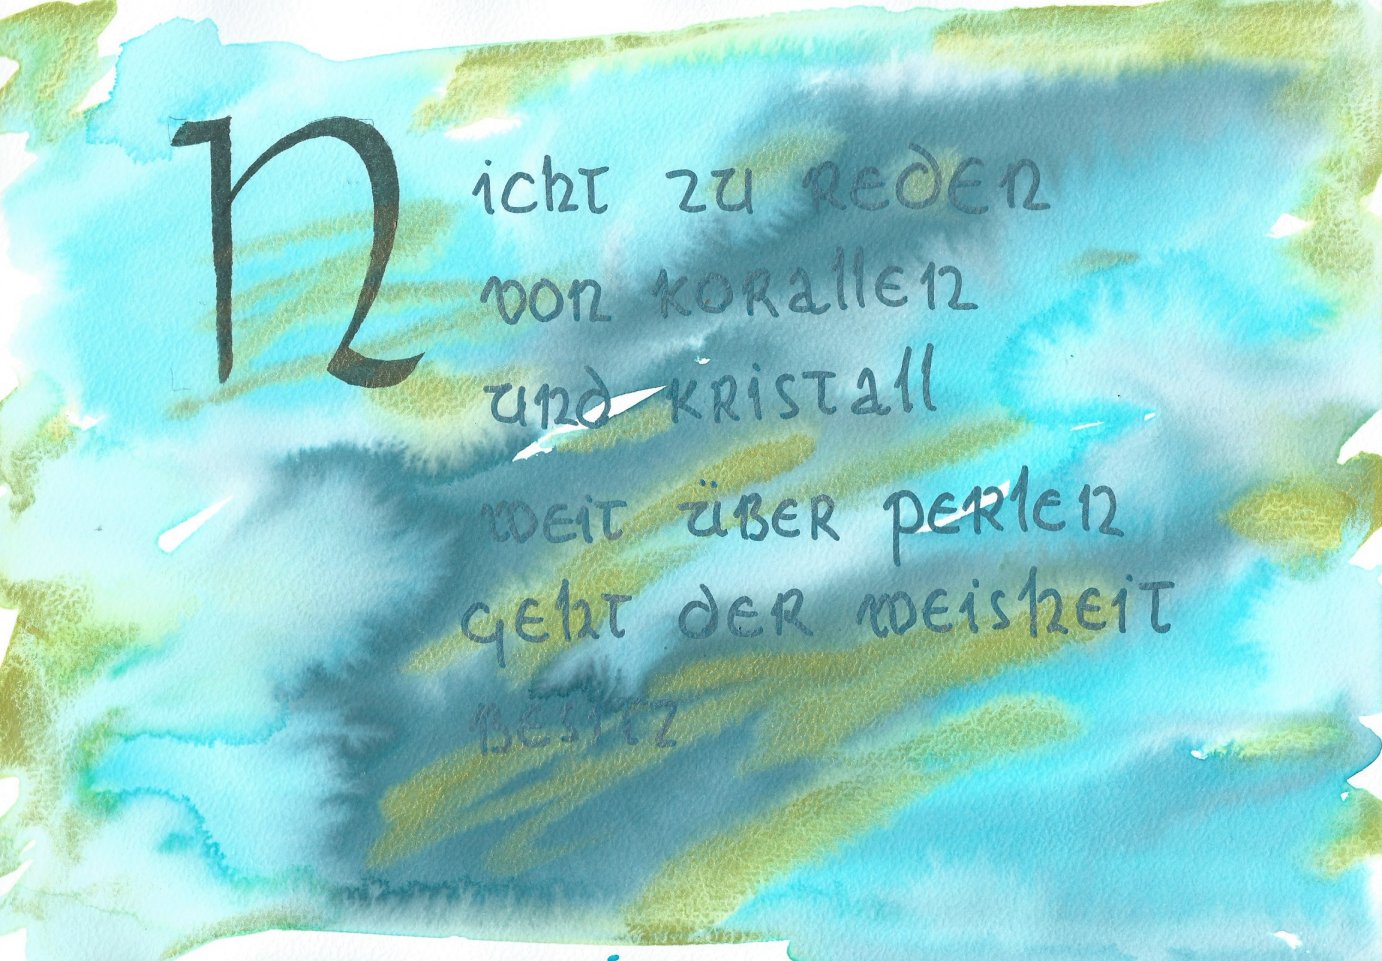 Nicht zu reden
von korallen
und kristall
weit über perlen
geht der weisheit
besitz